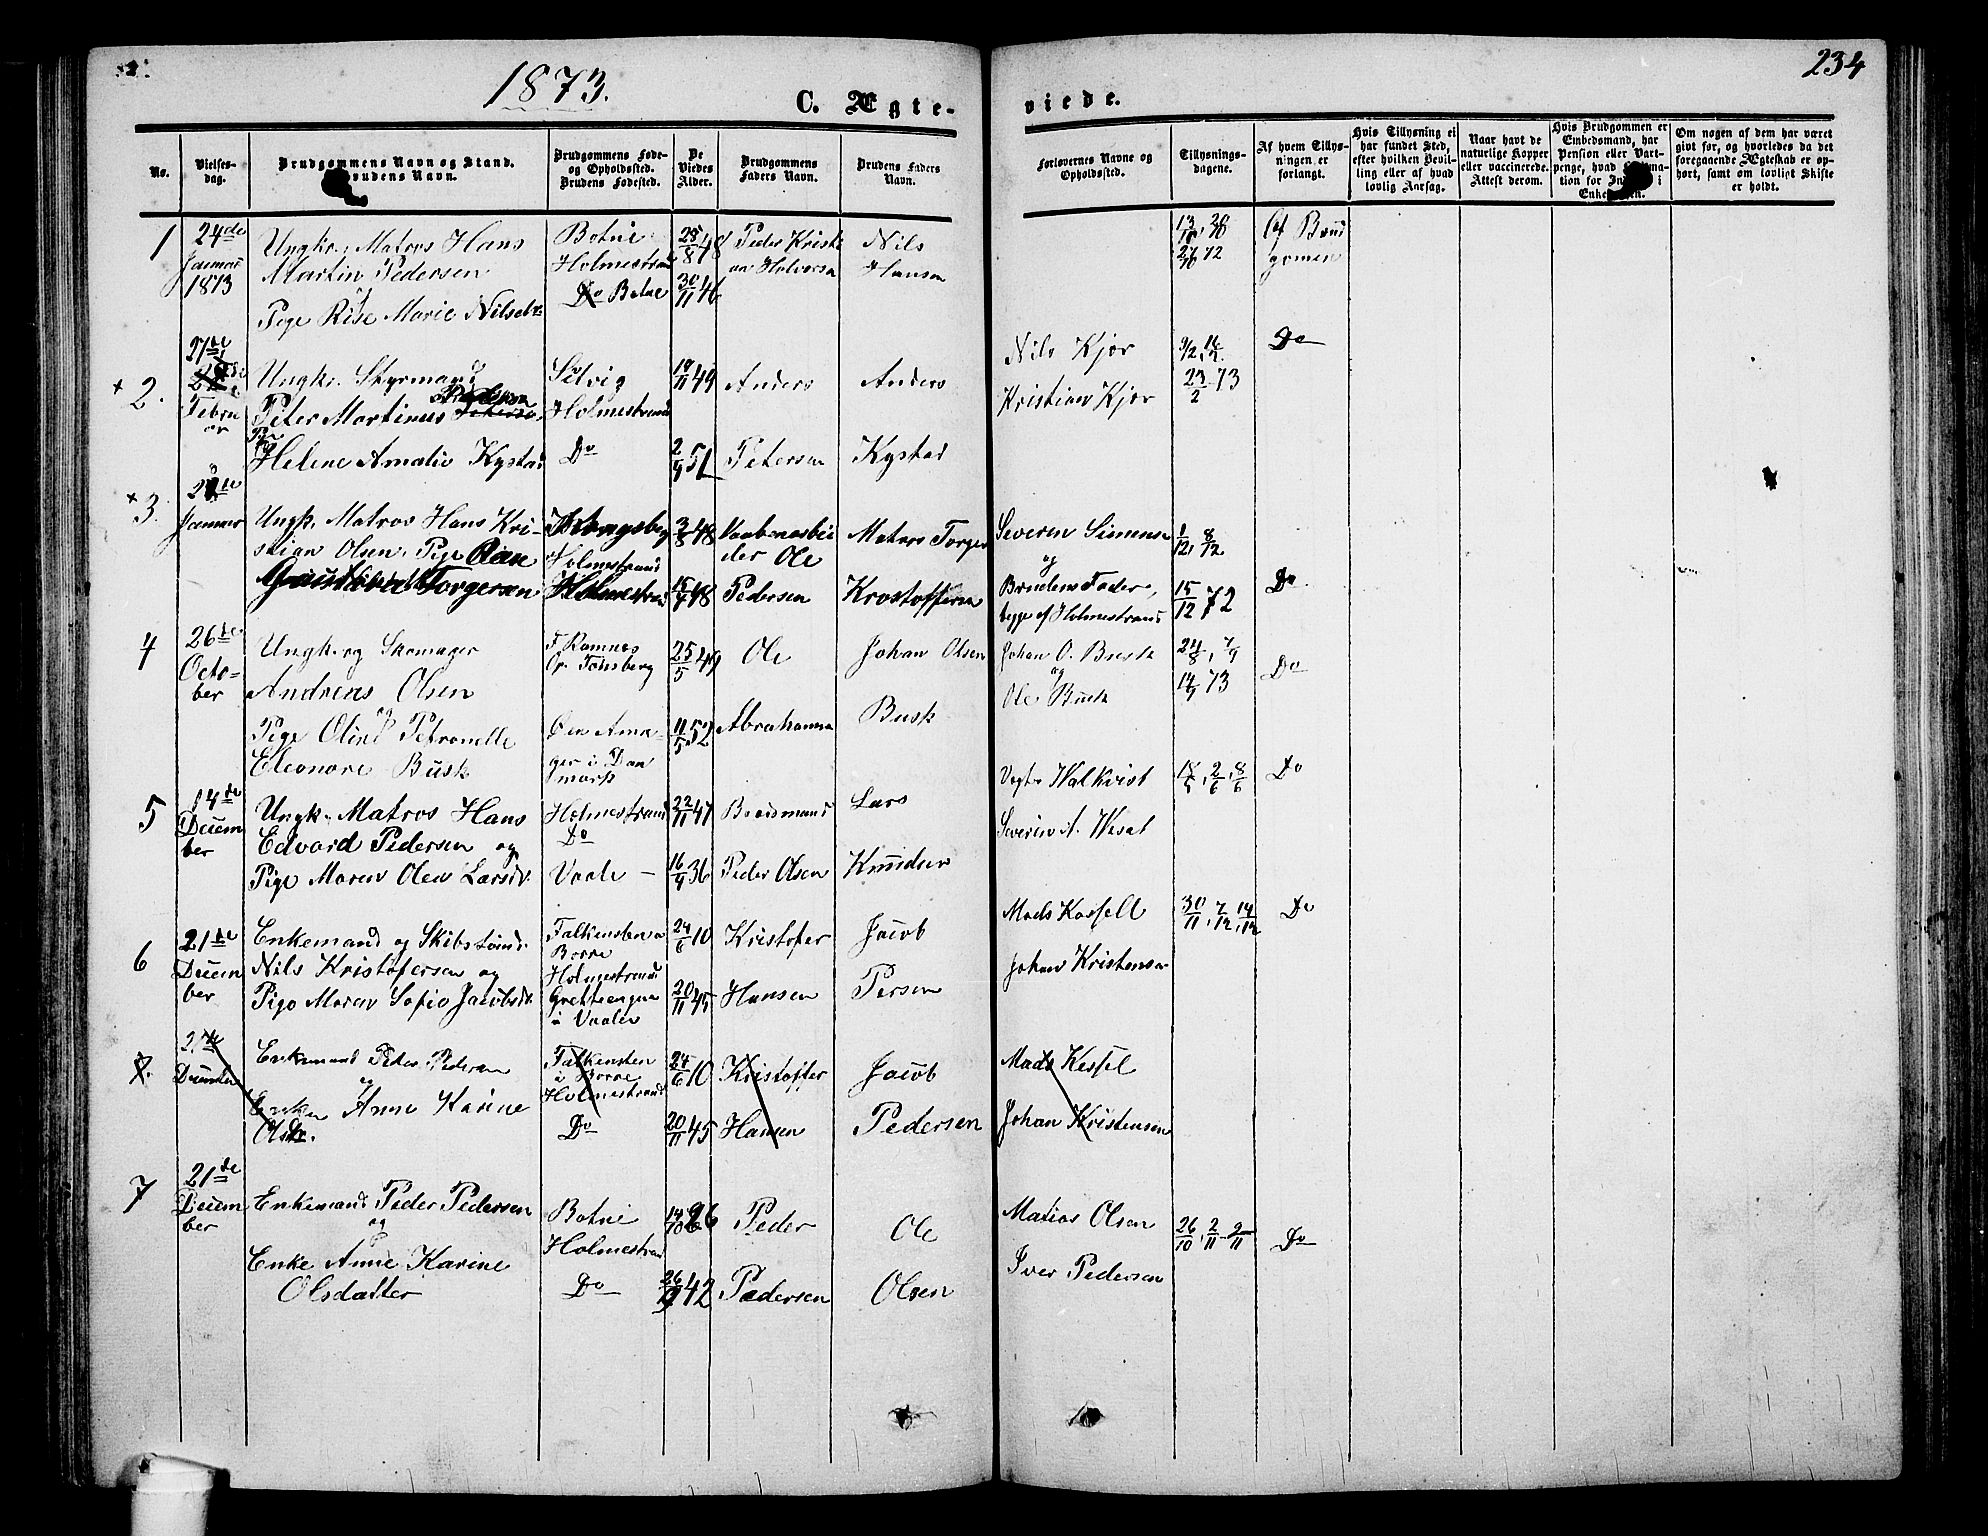 1873.
C. Ægte-
viede.
234
No.
Vielses-
dag.
Brudgommens Navn og Stand.
Brudens Navn.
Brudgommens Føde-
og Opholdssted.
Brudens Fødested.
De
Viedes
Alder.
Brudgommens
Faders Navn.
Brudens Faders
Navn.
Forlovernes Navne og
Opholdssted.
Tillysnings-
dagene.
Af hvem Tillys-
ningen er
forlangt.
Hvis Tillysning ei
har fundet Sted,
efter hvilken Bevil-
ling eller af hvad
lovlig Aarsag.
Naar havt de
naturlige Kopper
eller vaccinerede.
Attest derom.
Hvis Brudgommen er
Embedsmand, har
Pension eller Vart-
penge, hvad
tion for i
Om nogen af dem har været
givt før, og hvorledes da det
foregaaende Ægteskab er op-
hørt, samt om lovligt Skifte
er holdt.
1
24de
Januar
1873
Ungkr. Matros Hans
Martin Pedersen
og
Pige Rise Marie Nilsdtr
Botne
Holmestrand
Do Botne
25/8 48
30/11 46
Peder Kristi
an Halvorsen
Nils
Hansen
Af Brud
gomen
× 2.
27de
Februar
Ungkr. Styrmand
Peter Martinus Petersen
Pige
Helene Amalie Kystad
Selvig
Holmestrand
Do
19/11 49
2/9 51
Anders
Petersen
Anders
Kystad
Nils Kjør
Kristian Kjør
9/2, 16/2
23/2 73
Do
× 3.
Januar
Ungk. Matros Hans Kri-
stian Olsen, Pige
Torgersen
Kongsberg
Holmestrand
Holmestrand
3/8 48
15/9 48
Vaabenarbei
der Ole
Pedersen
Matros Torger
Kristoffersen
Severin Simensen
og
Brudens Fader,
begge af Holmestrand
1/12, 8/12
15/12 72
Do
4
26de
Octo-
ber
Ungk. og Skomager
Andreas Olsen
og
Pige Oline Petronelle
Eleonore Busk
F. Ramnes
Op. Tønsberg
Øen Ama-
ger i Dan
mark
25/5 49
11/5 52
Ole
Abrahamsen
Johan Olsen
Busk
Johan O. Busk
og
Ole Busk
24/8, 7/9
14/9 73
Do
5
14de
Decem
ber
Ungk. Matros Hans
Edvard Pedersen og
Pige Maren Olea Larsdtr
Holmestrand
Do
Vaale
22/11 47
16/9 36
Brodsmand
Peder Olsen
Lars
Knudsen
Vegtr Halkvist
Severin A. Wesat
18/5, 2/6, 8/6
Do
6
21de
Decem
ber
Enkemand og Skibstømr
Nils Kristofersen og
Pige Maren Sofie Jacobsdr
Falkensten i
Borre
Holmestrand
Gretteengen
i Vaale
24/6 10
20/11 45
Kristofer
Hansen
Jacob
Persen
Mads Kassell
Johan Kristensen
30/11, 7/12, 14/12
Do
7.
21de
December
Enkemand Peder Pedersen
og
Enken Anne Karine
Olsdr.
Falkensten
i Borre
Holmestrand
Do
24/6 10
20/11 45
Kristoffer
Hansen
Jacob
Pedersen
Mads Kessel
Johan Kristensen
7
21de
Decem
ber
Enkemand Peder Pedersen
og
Enke Anne Karine
Olsdatter
Botne
Holmestrand
Do
42
Peder
Pedersen
Ole
Olsen
Matias Olsen
Iver Pedersen
26/10, 2/11
Do